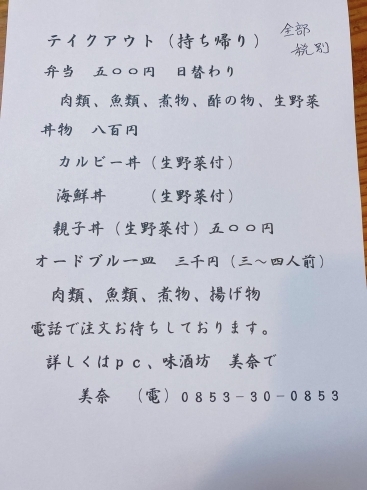 テイクアウト（持ち帰り）
全部
税別
弁当　五００円　日替わり
肉類、魚類、煮物、酢の物、生野菜
丼物　八百円
カルビー丼（生野菜付）
海鮮丼　　（生野菜付）
親子丼（生野菜付）五００円
オードブル一皿　三千円（三〜四人前）
肉類、魚類、煮物、揚げ物
電話で注文お待ちしております。
詳しくはｐｃ、味酒坊　美奈で
美奈　（電）０８５３－３０－０８５３